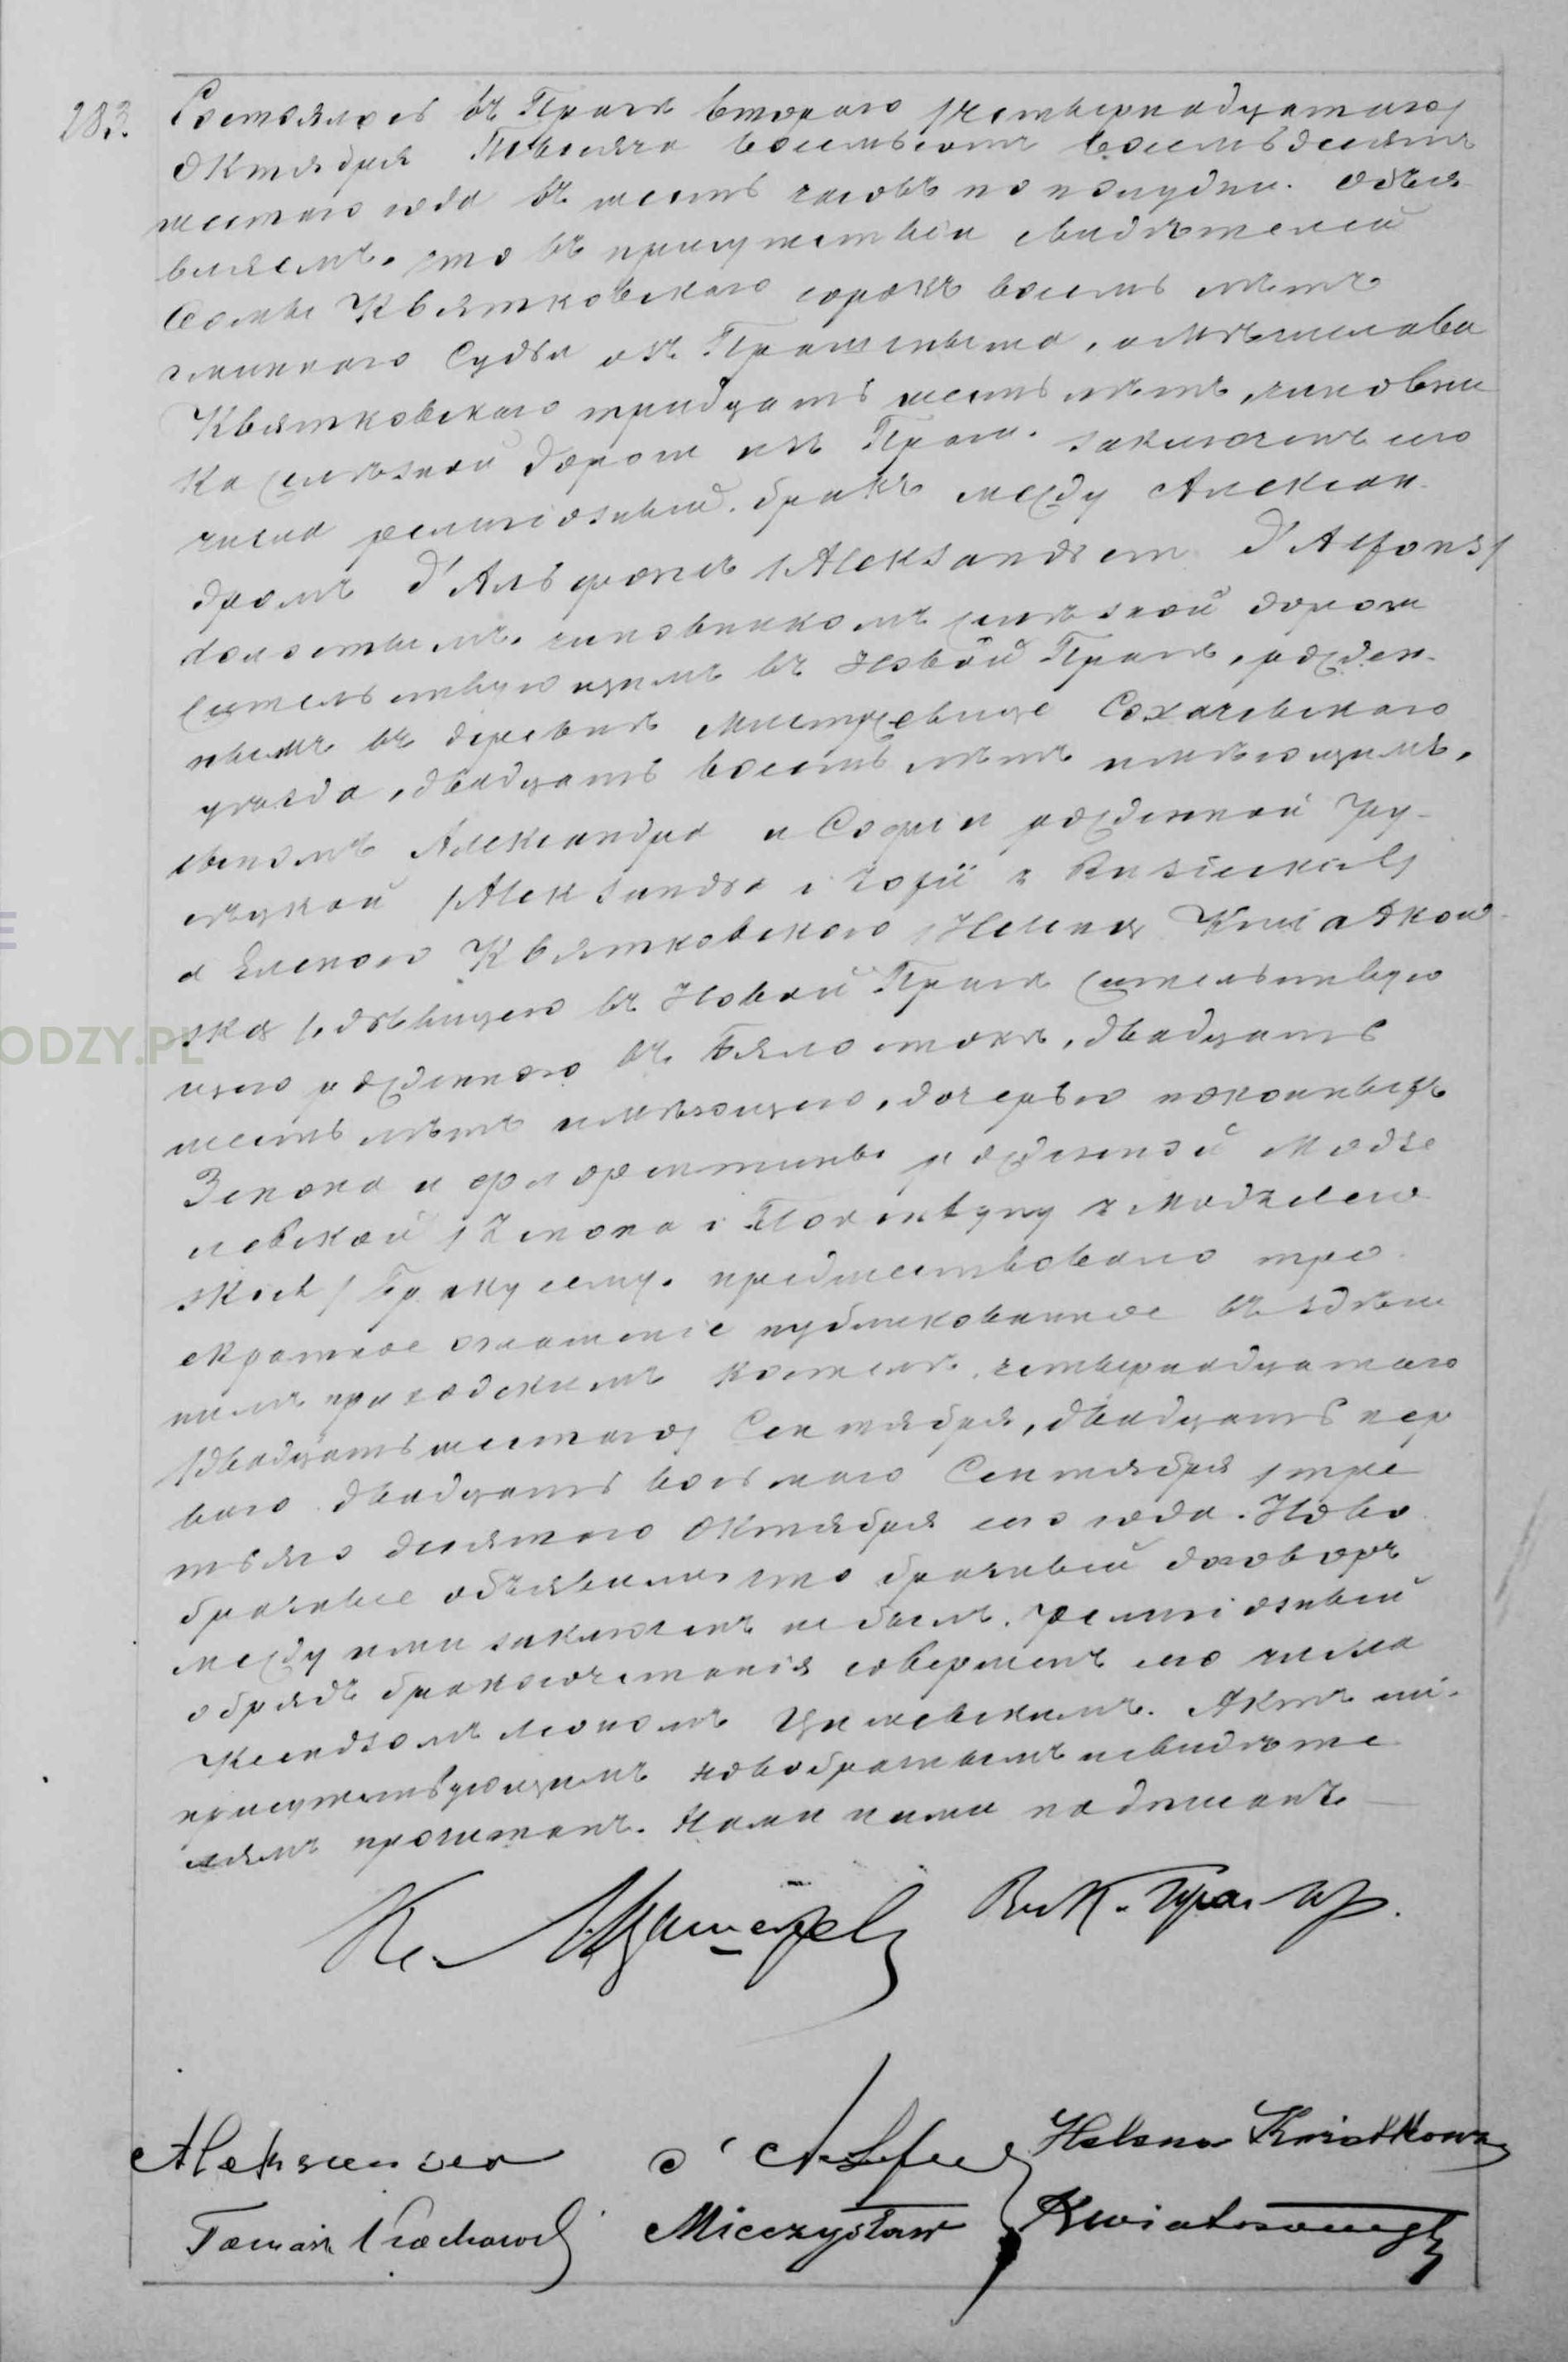 283.
Состоялось въ Праге втораго /четвернадцатаго/
Октября Тысяча восемьсотъ восемьдесятъ
шестаго года въ шесть часовъ по полудни. Объя
вляемъ, что въ присутствіи свидѣтелей
Квятковскаго сорокъ восемь лѣтъ
гминнаго Судьи изъ, и Мѣчислава
Квятковскаго тридцать шесть лѣтъ, чиновни
ка желѣзной дороги изъ Праги. заключенъ сего
числа религіозный бракъ между Алексан-
дромъ д'Альфонсъ /Aleksandrem d'Alfons/
холостымъ, чиновникомъ желѣзной дороги
жительствующимъ въ Новой Праге, рожден-
нымъ въ деревнѣ Сохачевскаго
уѣзда, двадцать восемь лѣтъ имѣющимъ,
сыномъ Александра и Софіи рожденной Ру-
сѣцкой /Aleksandra i Zofii z Rusieckich/
и Еленою Квятковскою /Heleną Kwiatkow-
ską/, дѣвицею въ Новой Праге жительствую
щею рожденною въ Бялостокѣ, двадцать
шесть лѣтъ имѣющею, дочерью покойныхъ
Зенона и Флорентины рожденной Модзе
левской /Zenona i z Modzelew
skich/ Браку сему предшествовало тро
екратное оглашеніе публикованное въ здѣш
нимъ приходскимъ костелѣ, четвернадцатаго
/двадцать шестаго/ Сентября, двадцать пер
ваго двадцать восьмаго Сентября /тре
тьяго десятаго Октября сего года. Ново
брачные объявили, что брачный договоръ
между ними заключенъ не былъ. Религіозный
обрядъ бракосочетанія совершенъ сего числа
Ксендзомъ Леономъ. Актъ сій
присутствующимъ новобрачнымъ и свидѣте
лямъ прочитанъ. Нами и ими подписанъ
Кс.
Aleksander d'Alfons Helena Kwiatkowska
Tomasz Mieczysław Kwiatkowski